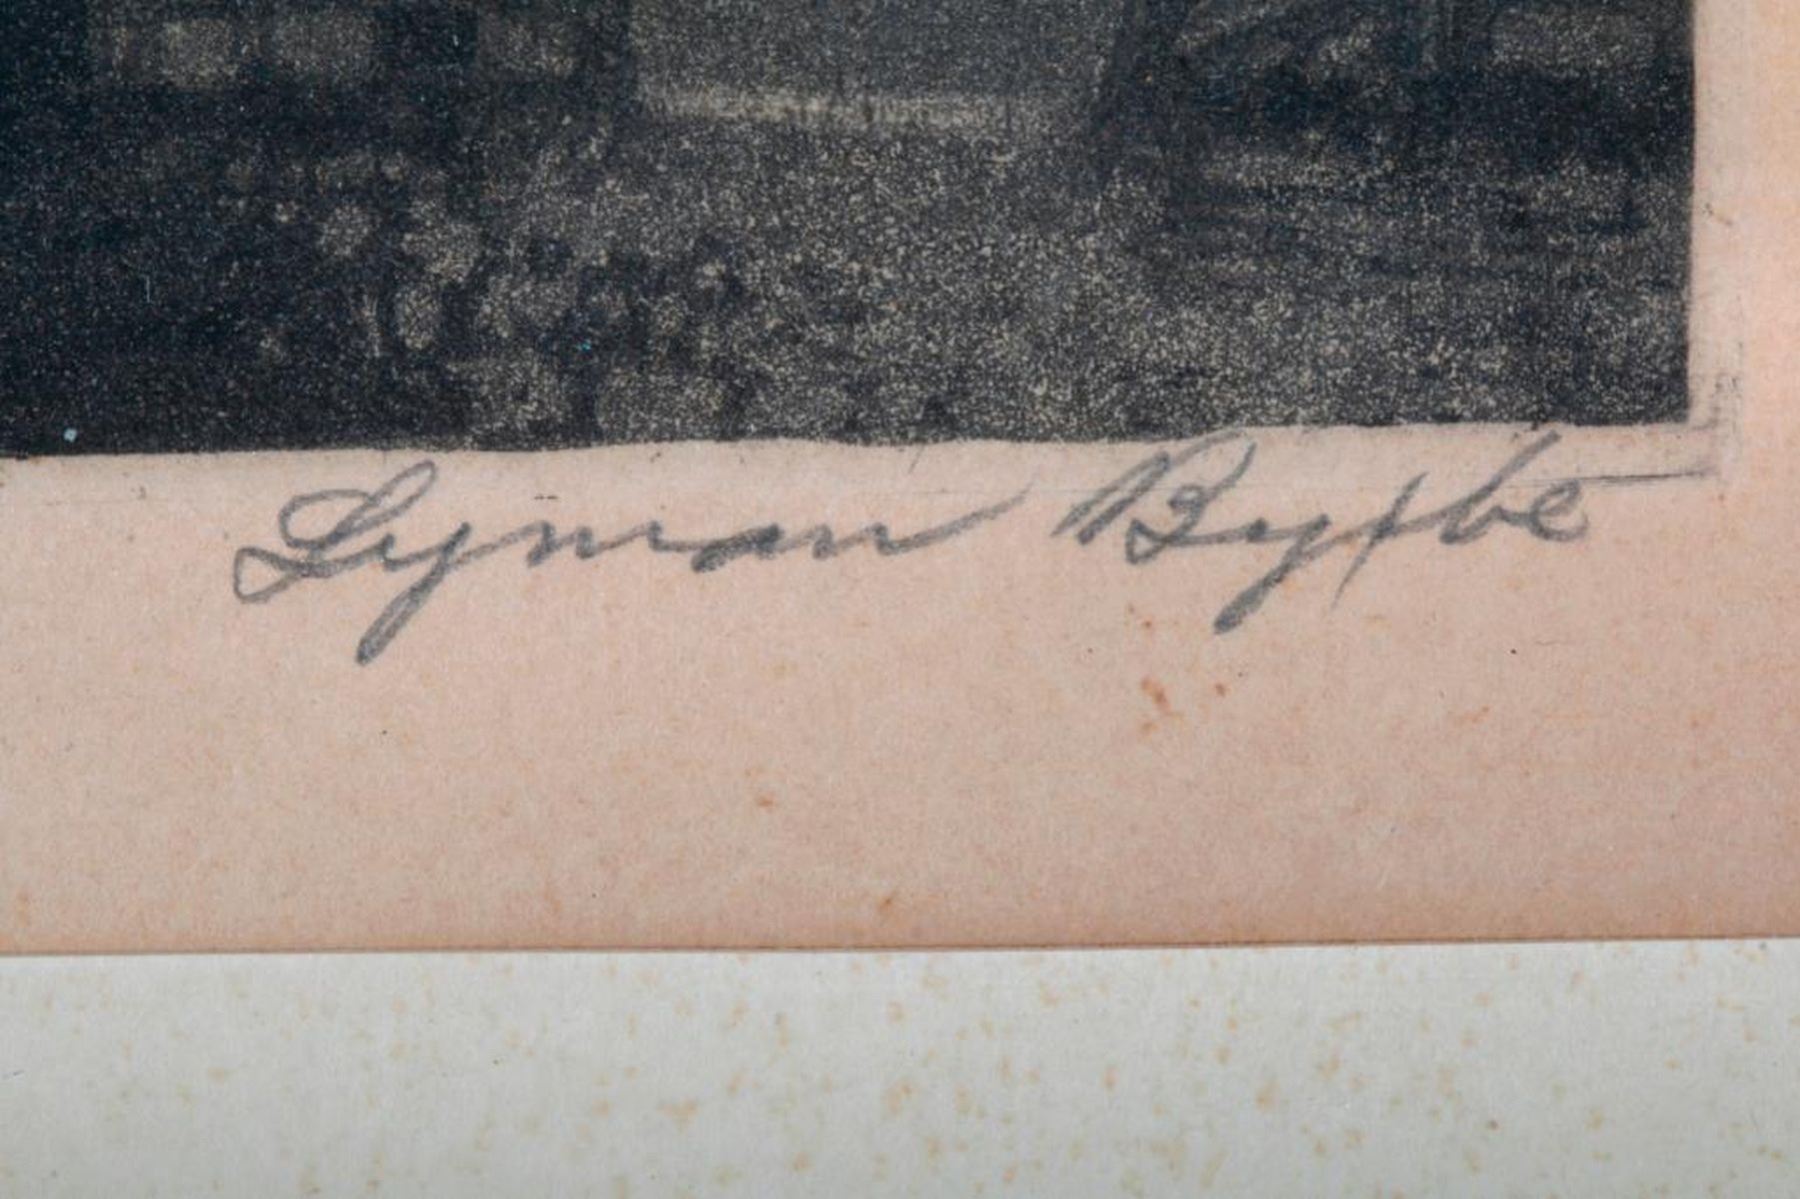 Lyman Byxbe